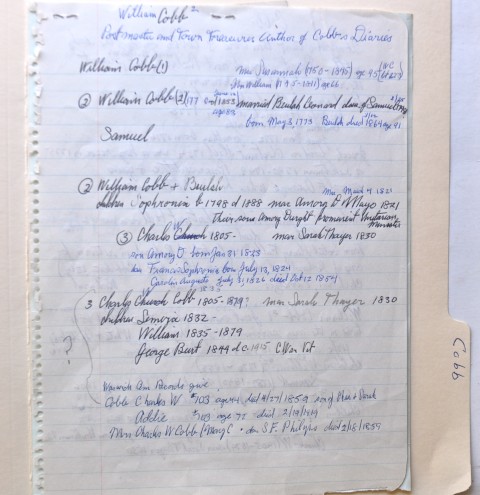 William Cobb 2
Postmaster and Town Treasurer author of Cobbs Diaries
William Cobb (1) mar Susannah (1750-1845) age 95
Wm William (1795-1841) age 66
② William Cobb (2) 1853 married Beulah Leonard dau of Samuel
born May 3, 1773 Beulah died 1864 age 91
Samuel
② William Cobb + Beulah
Sophronia b 1798 d 1888 mar Amory D Mayo 1821
their son Amory Dwight prominent Unitarian Minister
③ Charles Church 1805- mar Sarah Thayer 1830
son Amory D born Jan 31 1823
dau Francis Sophronia born July 13, 1824
Carolin Augusta July 8, 1826 died Oct 12 1854
3 Charles Church Cobb 1805-1879? mar Sarah Thayer 1830
Lemira 1832-
William 1835-1879
George Burt 1844 d c. 1915 C War Vet
?
Warwick Cem Records give
Cobb Charles W #103 age 44 died 4/27/1859 son of Chas + Sarah
Addie #103 age 75 died 2/19/1919
Mrs Charles W Cobb / Mary C. dau S.F. Philips died 2/18/1859
Cobb